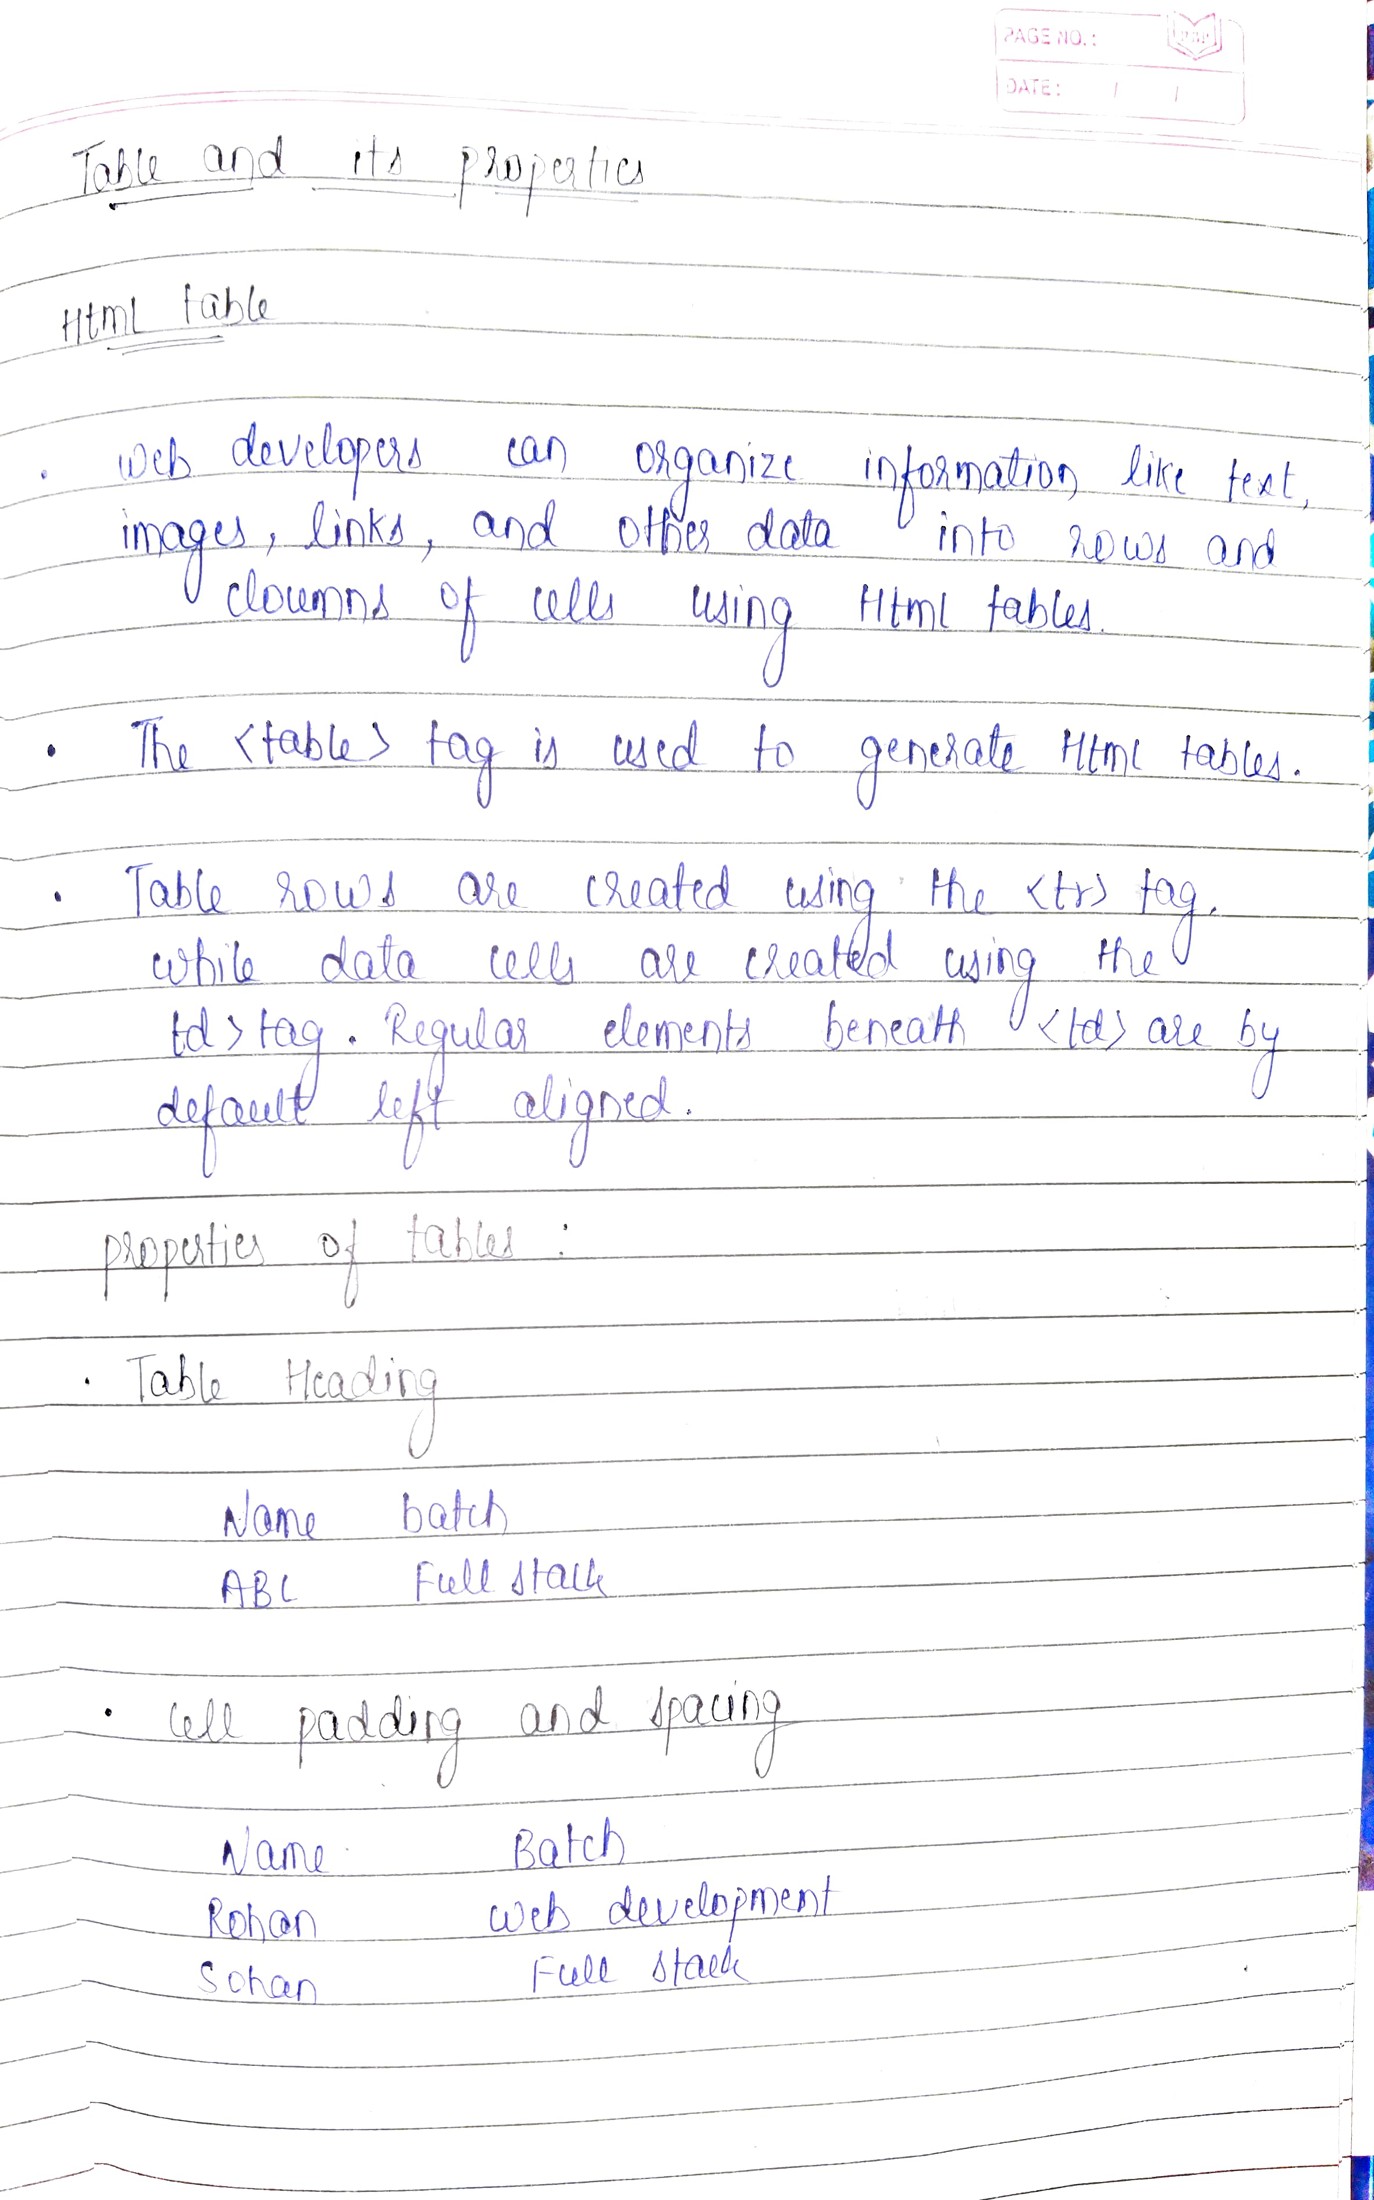 PAGE NO.:
DATE: / /
Table and its properties
Html table
• Web developers can organize information like text,
images, links, and other data into rows and
cloumns of cells using Html tables.
• The <table> tag is used to generate Html tables.
• Table rows are created using the <tr> tag,
while data cells are created using the
td> tag. Regular elements beneath <td> are by
default left aligned.
properties of tables :
• Table Heading
Name batch
ABC Full stack
• Cell padding and spacing
Name Batch
Rohan Web development
Sohan Full stack